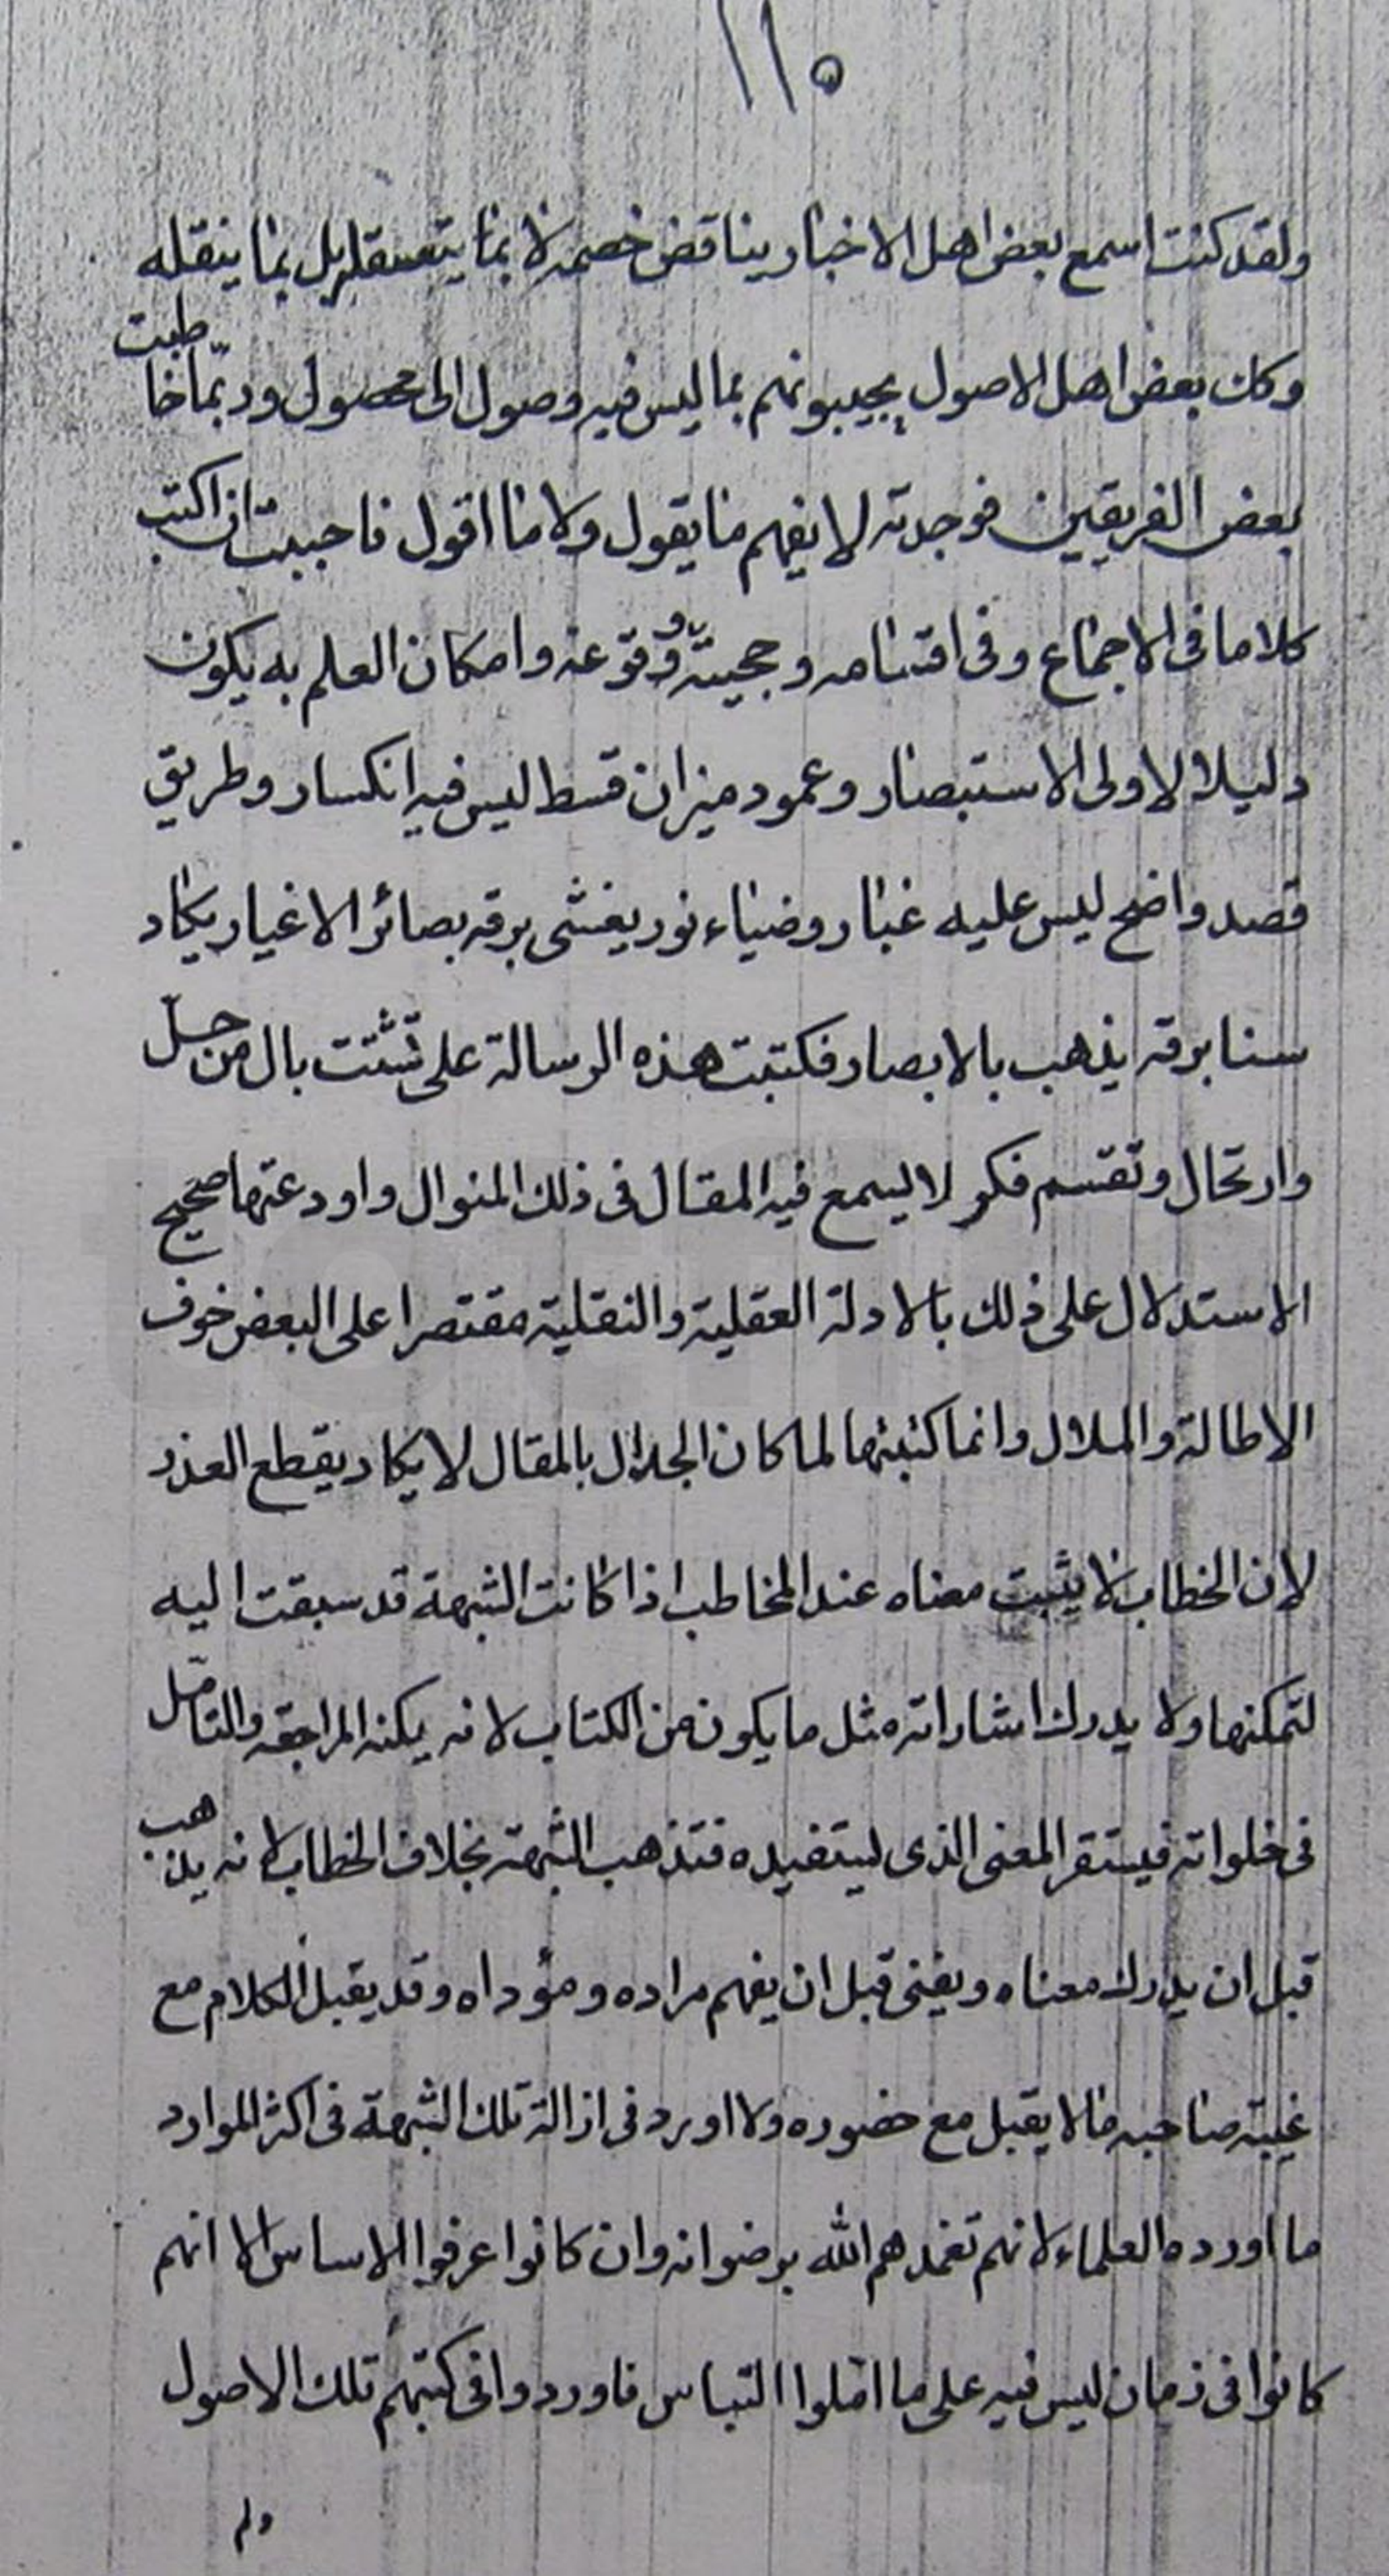 ١١٥
ولقد كنت اسمع بعض اهل الاخبار يناقض خصمه لا بما يتعقله بل بما ينقله
وكان بعض اهل الاصول يجيبونهم بما ليس فيه وصول الى محصول وربّما خاطبت
بعض الفريقين فوجدته لا يفهم ما يقول ولا ما اقول فاحببت ان اكتب
كلاما فى الاجماع وفى اقسامه وحجيته ووقوعه وامكان العلم به يكون
دليلا لاولى الاستبصار وعمود ميزان قسط ليس فيه انكسار وطريق
قصد واضح ليس عليه غبار وضياء نور يغشى برقه بصائر الاغيار يكاد
سنا برقه يذهب بالابصار فكتبت هذه الرسالة على تشتت بال من حلّ
وارتحال وتقسم فكر لا يسمع فيه المقال فى ذلك المنوال واودعتها صحيح
الاستدلال على ذلك بالادلة العقلية والنقلية مقتصرا على البعض خوف
الاطالة والملال وانما كتبتها لما كان الجدال بالمقال لا يكاد يقطع العذر
لان الخطاب لا يثبت معناه عند المخاطب اذا كانت الشبهة قد سبقت اليه
لتمكنها ولا يدرك اشاراته مثل ما يكون من الكتاب لانه يمكنه المراجعة والتامّل
فى خلواته فيستقر المعنى الذى ليستفيده فتذهب الشبهة بخلاف الخطاب لانه يذهب
قبل ان يدرك معناه ويفنى قبل ان يفهم مراده ومؤداه وقد يقبل الكلام مع
غيبة صاحبه ما لا يقبل مع حضوره ولا اورد فى ازالة تلك الشبهة فى اكثر الموارد
ما اورده العلماء لانهم تغمدهم الله برضوانه وان كانوا عرفوا الاساس الا انهم
كانوا فى زمان ليس فيه على ما املوا التباس فاوردوا فى كتبهم تلك الاصول
ولم